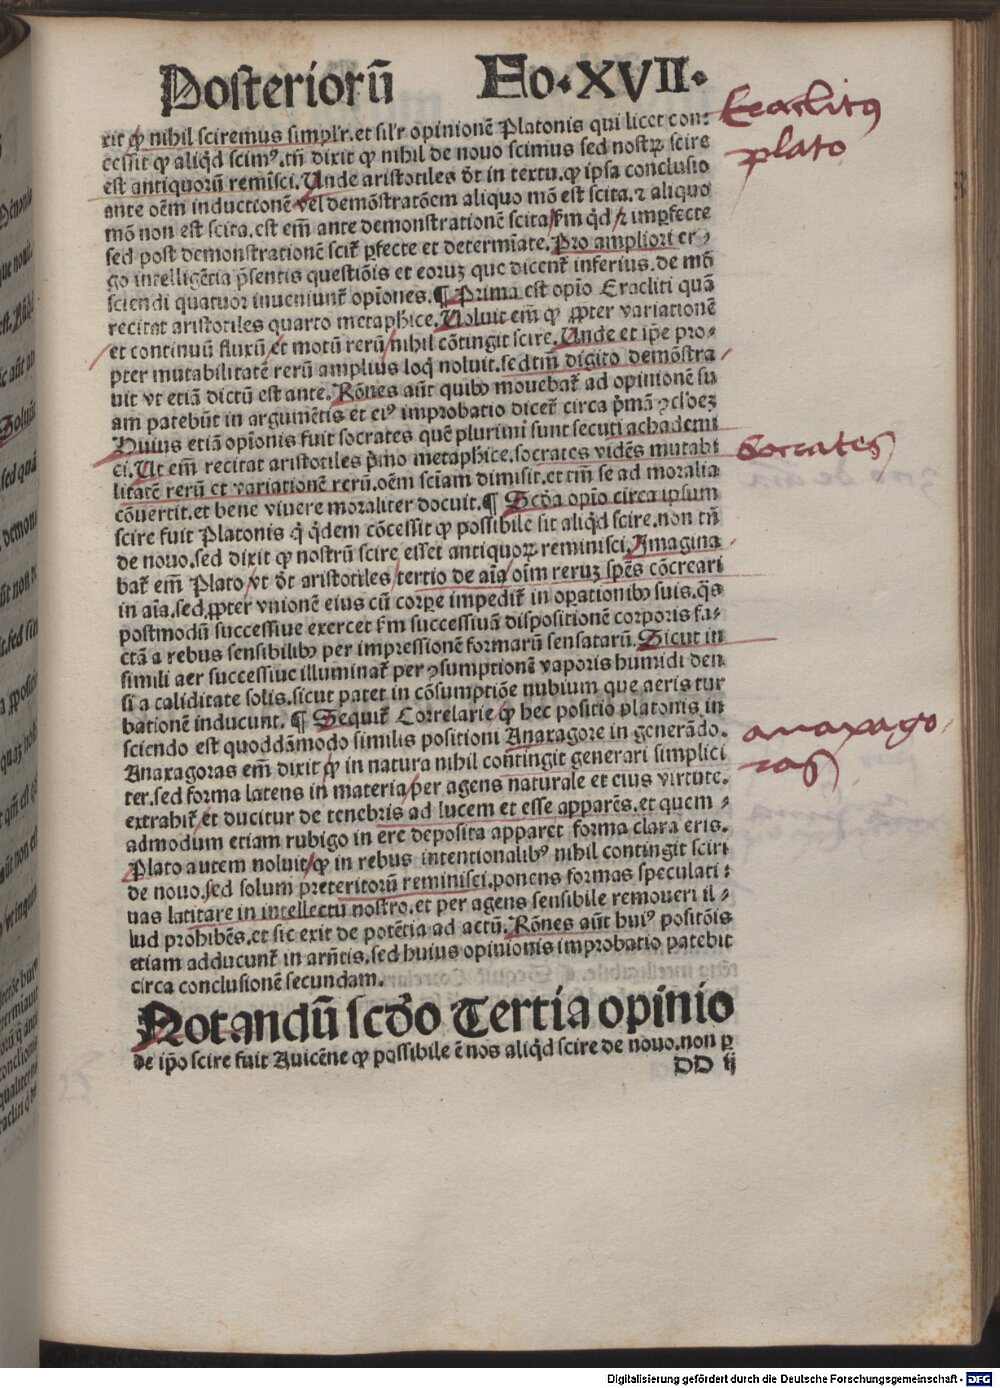 Posteriorū Fo.XVII.
xit ꝙ nihil sciremus simpl'r.et sil'r opinionē Platonis qui licet con:
cessit ꝙ aliq̇d scimꝰ.tn̄ dixit ꝙ nihil de nouo scimus sed nostꝝ scire
est antiquorū remīsci.Unde aristotiles dt̄ in textu.ꝙ ipsa conclusio
ante oēm inductionē vel demōstratōem aliquo mō est scita.⁊ aliquo
mō non est scita.est em̄ ante demonstrationē scita fm qd̄ ⁊ imꝑfecte
sed post demonstrationē scit̄ ꝑfecte et determīate.Pro ampliori er
go intelligētia p̄sentis questiōis et eoruꝫ que dicent̄ inferius.de mō
sciendi quatuor inueniunt̄ opiōnes.¶ Prima est opīo Eracliti quā
recitat aristotiles quarto metaph̄ice.Uoluit em̄ ꝙ ꝓpter variationē
et continuū fluxū et motū rerū nihil cōtingit scire.Unde et ip̄e pro-
pter mutabilitatē rerū amplius loq̇ noluit.sed tm̄ digito demōstra
uit vt etiā dictū est ante.Rōnes aūt quibꝰ mouebat̄ ad opinionē su
am patebūt in argumētis et eiꝰ improbatio dicet̄ circa p̄mā ꝯcl'oeꝫ
Huius etiā opīonis fuit socrates quē plurimi sunt secuti achademi
ci.Ut em̄ recitat aristotiles p̄mo metaph̄ice.socrates vidēs mutabi
litatē rerū et variationē rerū.oēm sciam dimisit.et tm̄ se ad moralia
cōuertit.et bene viuere moraliter docuit.¶ Scd̄a opīo circa ipsum
scire fuit Platonis q̇ q̇dem cōcessit ꝙ possibile sit aliq̇d scire.non tn̄
de nouo.sed dixit ꝙ nostrū scire esset antiquoꝝ reminisci.Imagina
bat̄ em̄ Plato vt dt̄ aristotiles tertio de aīa oīm reruꝫ sp̄es cōcreari
in aīa.sed ꝓpter vnionē eius cū corꝑe impedit̄ in oꝑationibꝰ suis.q̄s
postmodū successiue exercet fm successiuā dispositionē corporis fa-
ctā a rebus sensibilibꝰ per impressionē formarū sensatarū.Sicut in
simili aer successiue illuminat̄ per ꝯsumptionē vaporis humidi den
si a caliditate solis.sicut patet in cōsumptiōe nubium que aeris tur
bationē inducunt.¶ Sequit̄ Correlarie ꝙ hec positio platonis in
sciendo est quoddāmodo similis positioni Anaxagore in generādo.
Anaxagoras em̄ dixit ꝙ in natura nihil contingit generari simplici
ter.sed forma latens in materia per agens naturale et eius virtute.
extrahit̄ et ducitur de tenebris ad lucem et esse apparēs.et quem-
admodum etiam rubigo in ere deposita apparet forma clara eris.
Plato autem noluit ꝙ in rebus intentionalibꝰ nihil contingit sciri
de nouo.sed solum preteritorū reminisci.ponens formas speculati:
uas latitare in intellectu nostro.et per agens sensibile remoueri il-
lud prohibēs.et sic exit de potētia ad actū.Rōnes aūt huiꝰ positōis
etiam adducunt̄ in arḡtis.sed huius opinionis improbatio patebit
circa conclusionē secundam.
Notandū scd̄o Tertia opinio
de ip̄o scire fuit Auicēne ꝙ possibile ē nos aliq̇d scire de nouo.non ꝑ
DD ij
Eraclitꝰ
plato
Socrates
anaxago
ras
Digitalisierung gefördert durch die Deutsche Forschungsgemeinschaft - DFG